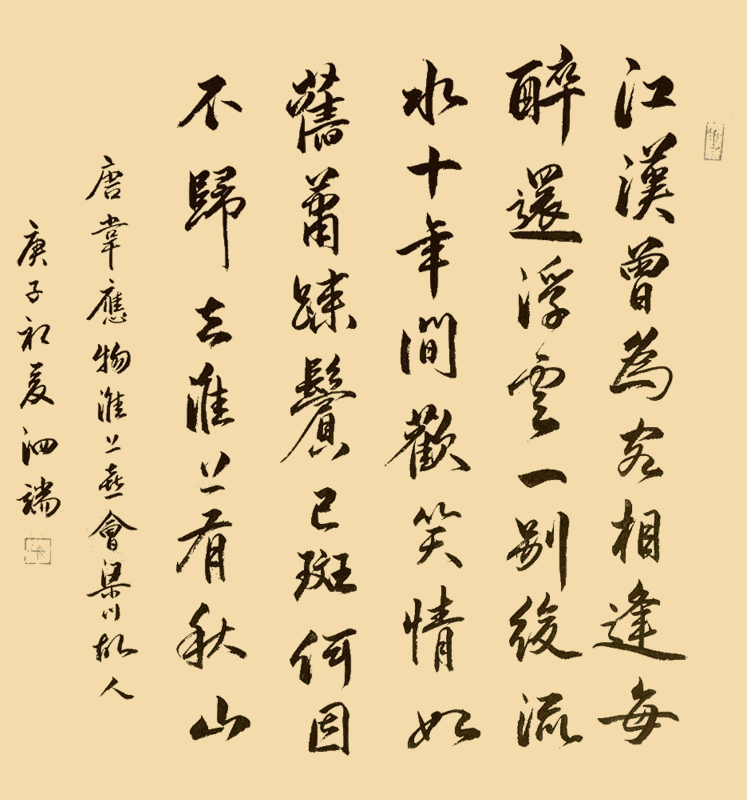 江漢曾為客相逢每
醉還浮雲一別後流
水十年間歡笑情如
舊蕭疎鬢已斑何因
不歸去淮上有秋山
唐韋應物淮上喜會梁川故人
庚子初夏泗端